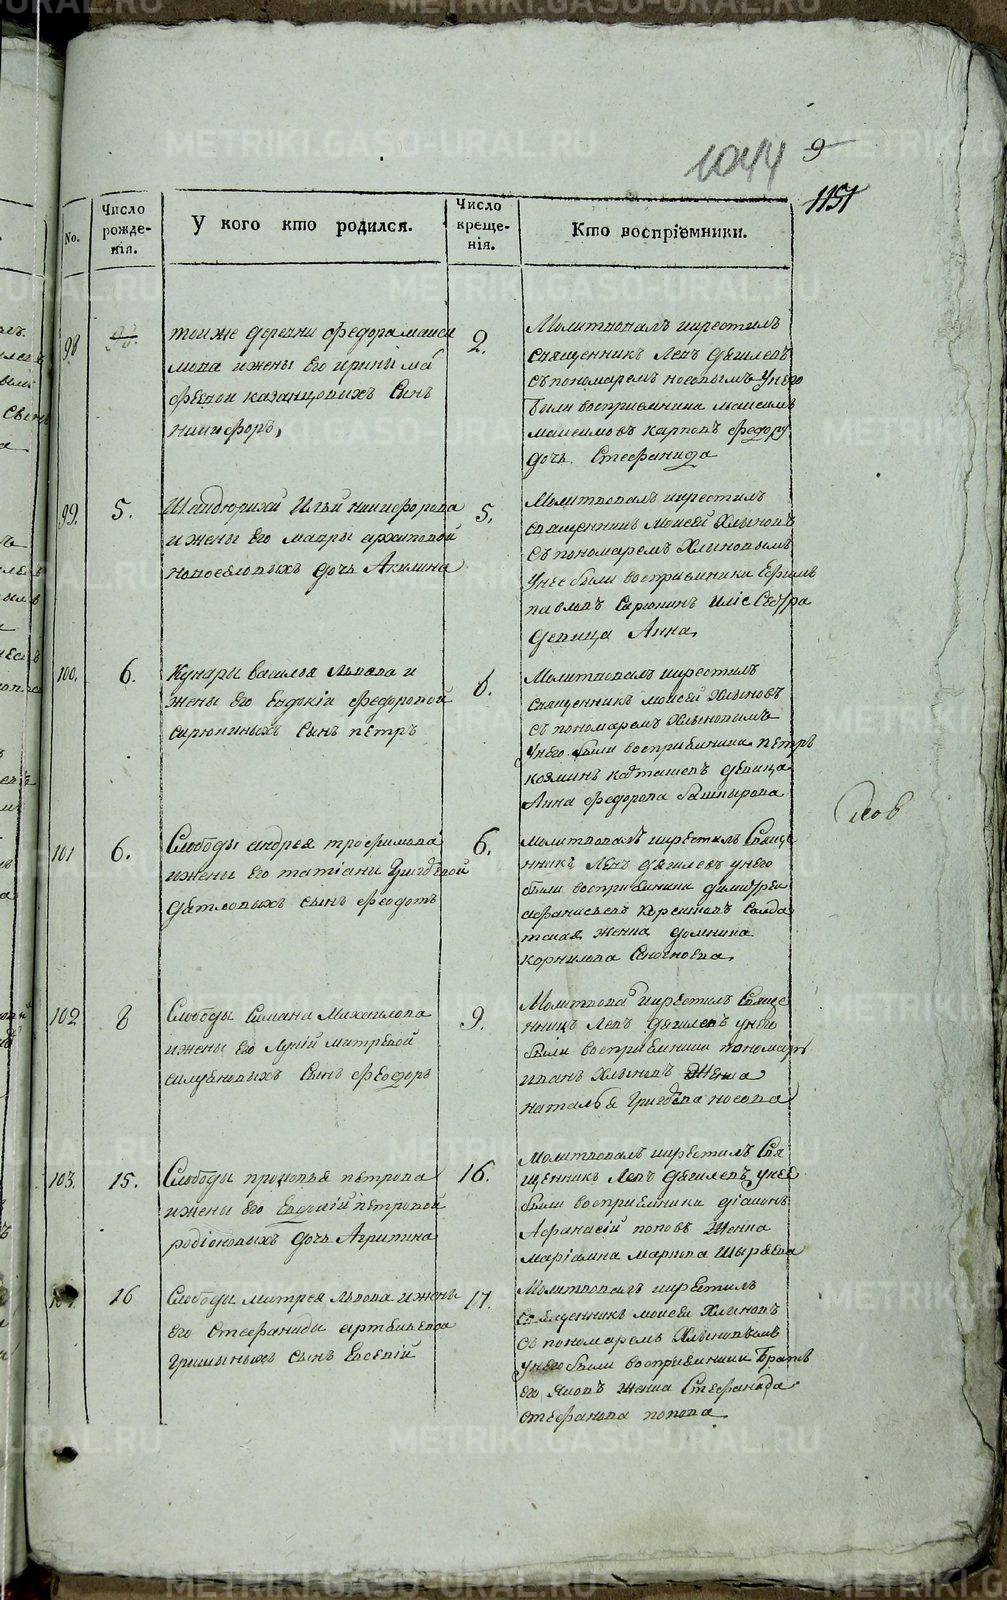 1044 9
1151
No.
Число рожденія.
У кого кто родился.
Число крещенія.
Кто воспріемники.
98
тои же деревни Федора макси
мова и жены его ирины ма
феевои казанцовыхъ сынъ
никифоръ,
2.
Молитвовалъ и крестилъ
священникъ Левъ Дягилевъ
съ пономаремъ носовымъ У него
были восприемники максимъ
максимовъ карповъ
дочь Стефанида
99.
5.
Ильи никифорова
и жены его мавры архиповой
новоселовыхъ дочь Акилина
5.
Молитвовалъ и крестилъ
священникъ моисей Хлыновъ
съ пономаремъ Хлыновымъ
У нее были восприемники Ефимъ
павловъ Сарюнинъ
девица Анна,
100.
6.
Кунары василья Львова и
жены его Евдокіи Федоровой
сарюниныхъ сынъ петръ
6.
Молитвовалъ и крестилъ
священникъ моисей Хлыновъ
съ пономаремъ Хлыновымъ
У него были восприемники петръ
девица
Анна Федорова башкырова
101
6.
Слободы андрея трофимова
и жены его татіаны Григорьевой
Дятловыхъ сынъ Феодотъ
6.
молитвовалъ и крестилъ Свяще
нникъ Левъ Дягилевъ у него
были восприемники димитреи
афанасьевъ солда
тская женка домника
корнилова
102
8
Слободы Симана Михаилова
и жены его Лукіи митревой
сынъ Феодоръ
9.
Молитвова и крестилъ Свяще
нникъ Левъ Дягилевъ у него
были восприемники пономарь
иванъ Хлыновъ женка
наталья Григорьева носова
103.
15.
Слободы прокопья петрова
и жены его Евдокіи петровой
родіоновыхъ дочь Агрипина
16.
Молитвовалъ и крестилъ Свя
щенникъ Левъ Дягилевъ у нее
были восприемники діаконъ
Афанасій поповъ женка
маріамна маркова Шыряева
104.
16
Слободы митрея Львова и жены
его Стефаниды артемьевой
Гришыныхъ сынъ Евсевій
17.
Молитвовалъ и крестилъ
священникъ моисей Хлыновъ
съ пономаремъ Хлыновымъ
у него были восприемники братъ
его Яковъ женка Стефанида
стефанова попова
METRIKI.GASO-URAL.RU